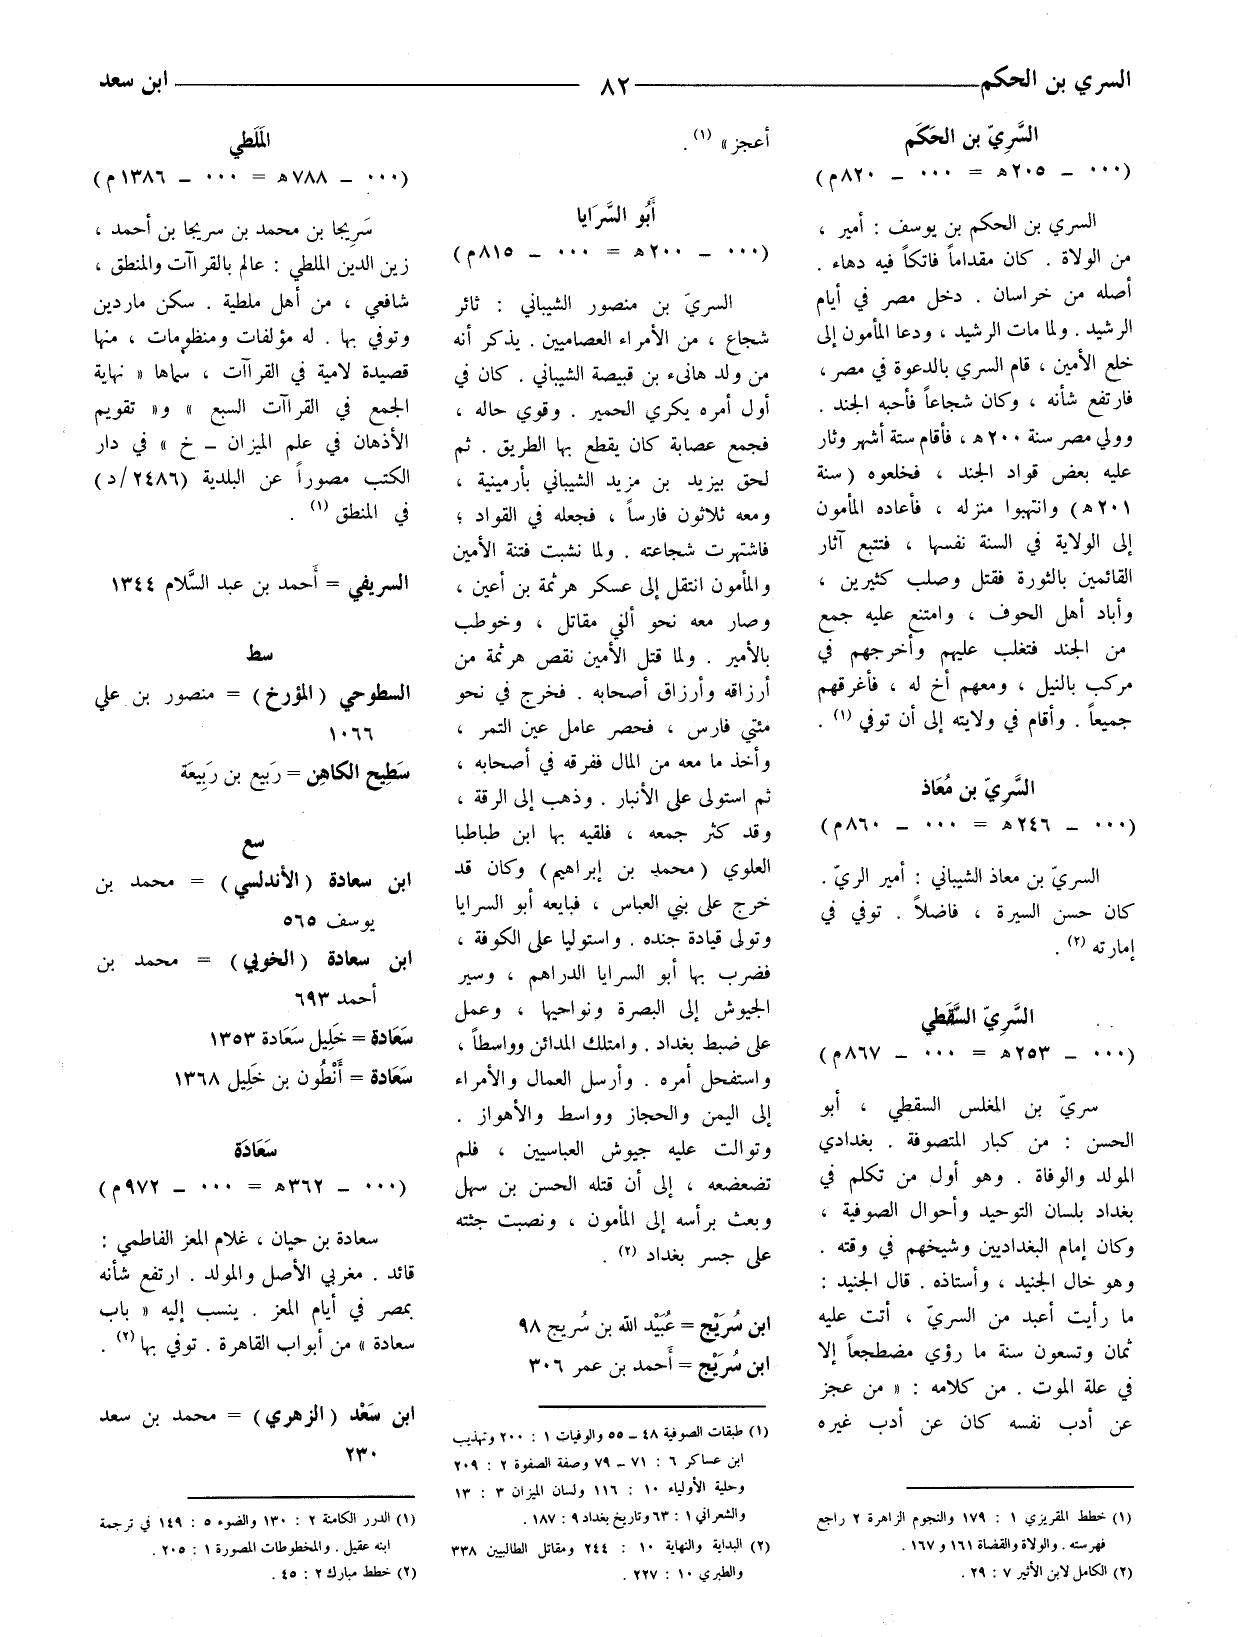 السري بن الحكم ٨٢ ابن سعد
السَّرِيّ بن الحَكَم
(٠٠٠ ـ ٢٠٥هـ = ٠٠٠ ـ ٨٢٠م)
السري بن الحكم بن يوسف : أمير ،
من الولاة . كان مقداماً فاتكاً فيه دهاء .
أصله من خراسان . دخل مصر في أيام
الرشيد . ولما مات الرشيد ، ودعا المأمون إلى
خلع الأمين ، قام السري بالدعوة في مصر ،
فارتفع شأنه ، وكان شجاعاً فأحبه الجند .
وولي مصر سنة ٢٠٠هـ ، فأقام ستة أشهر وثار
عليه بعض قواد الجند ، فخلعوه (سنة
٢٠١هـ) وانتهبوا منزله ، فأعاده المأمون
إلى الولاية في السنة نفسها ، فتتبع آثار
القائمين بالثورة فقتل وصلب كثيرين ،
وأباد أهل الحوف ، وامتنع عليه جمع
من الجند فتغلب عليهم وأخرجهم في
مركب بالنيل ، ومعهم أخ له ، فأغرقهم
جميعاً . وأقام في ولايته إلى أن توفي (١) .
السَّرِيّ بن مُعَاذ
(٠٠٠ ـ ٢٤٦هـ = ٠٠٠ ـ ٨٦٠م)
السريّ بن معاذ الشيباني : أمير الريّ .
كان حسن السيرة ، فاضلاً . توفي في
إمارته (٢) .
السَّرِيّ السَّقَطي
(٠٠٠ ـ ٢٥٣هـ = ٠٠٠ ـ ٨٦٧م)
سريّ بن المغلس السقطي ، أبو
الحسن : من كبار المتصوفة . بغدادي
المولد والوفاة . وهو أول من تكلم في
بغداد بلسان التوحيد وأحوال الصوفية ،
وكان إمام البغداديين وشيخهم في وقته .
وهو خال الجنيد ، وأستاذه . قال الجنيد :
ما رأيت أعبد من السريّ ، أتت عليه
ثمان وتسعون سنة ما رؤي مضطجعاً إلا
في علة الموت . من كلامه : « من عجز
عن أدب نفسه كان عن أدب غيره
(١) خطط المقريزي ١ : ١٧٩ والنجوم الزاهرة ٢ راجع
فهرسته . والولاة والقضاة ١٦١ و ١٦٧ .
(٢) الكامل لابن الأثير ٧ : ٢٩ .
أعجز » (١) .
أَبُو السَّرَايا
(٠٠٠ ـ ٢٠٠هـ = ٠٠٠ ـ ٨١٥م)
السريّ بن منصور الشيباني : ثائر
شجاع ، من الأمراء العصاميين . يذكر أنه
من ولد هانىء بن قبيصة الشيباني . كان في
أول أمره يكري الحمير . وقوي حاله ،
فجمع عصابة كان يقطع بها الطريق . ثم
لحق بيزيد بن مزيد الشيباني بأرمينية ،
ومعه ثلاثون فارساً ، فجعله في القواد ؛
فاشتهرت شجاعته . ولما نشبت فتنة الأمين
والمأمون انتقل إلى عسكر هرثمة بن أعين ،
وصار معه نحو ألفي مقاتل ، وخوطب
بالأمير . ولما قتل الأمين نقص هرثمة من
أرزاقه وأرزاق أصحابه . فخرج في نحو
مئتي فارس ، فحصر عامل عين التمر ،
وأخذ ما معه من المال ففرقه في أصحابه ،
ثم استولى على الأنبار . وذهب إلى الرقة ،
وقد كثر جمعه ، فلقيه بها ابن طباطبا
العلوي (محمد بن إبراهيم) وكان قد
خرج على بني العباس ، فبايعه أبو السرايا
وتولى قيادة جنده . واستوليا على الكوفة ،
فضرب بها أبو السرايا الدراهم ، وسير
الجيوش إلى البصرة ونواحيها ، وعمل
على ضبط بغداد . وامتلك المدائن وواسطاً ،
واستفحل أمره . وأرسل العمال والأمراء
إلى اليمن والحجاز وواسط والأهواز .
وتوالت عليه جيوش العباسيين ، فلم
تضعضعه ، إلى أن قتله الحسن بن سهل
وبعث برأسه إلى المأمون ، ونصبت جثته
على جسر بغداد (٢) .
ابن سُرَيْج = عُبَيْد الله بن سُريج ٩٨
ابن سُرَيْج = أَحمد بن عمر ٣٠٦
(١) طبقات الصوفية ٤٨ ـ ٥٥ والوفيات ١ : ٢٠٠ وتهذيب
ابن عساكر ٦ : ٧١ ـ ٧٩ وصفة الصفوة ٢ : ٢٠٩
وحلية الأولياء ١٠ : ١١٦ ولسان الميزان ٣ : ١٣
والشعراني ١ : ٦٣ وتاريخ بغداد ٩ : ١٨٧ .
(٢) البداية والنهاية ١٠ : ٢٤٤ ومقاتل الطالبيين ٣٣٨
والطبري ١٠ : ٢٢٧ .
المَلَطي
(٠٠٠ ـ ٧٨٨هـ = ٠٠٠ ـ ١٣٨٦م)
سَرِيجا بن محمد بن سريجا بن أحمد ،
زين الدين الملطي : عالم بالقراآت والمنطق ،
شافعي ، من أهل ملطية . سكن ماردين
وتوفي بها . له مؤلفات ومنظومات ، منها
قصيدة لامية في القراآت ، سماها « نهاية
الجمع في القراآت السبع » و« تقويم
الأذهان في علم الميزان ـ خ » في دار
الكتب مصوراً عن البلدية (٢٤٨٦/د)
في المنطق (١) .
السريفي = أَحمد بن عبد السَّلام ١٣٤٤
سط
السطوحي (المؤرخ) = منصور بن علي
١٠٦٦
سَطِيح الكاهِن = رَبيع بن رَبِيعَة
سع
ابن سعادة (الأندلسي) = محمد بن
يوسف ٥٦٥
ابن سعادة (الخوبي) = محمد بن
أحمد ٦٩٣
سَعَادة = خَلِيل سعَادة ١٣٥٣
سَعَادة = أَنْطُون بن خَلِيل ١٣٦٨
سَعَادَة
(٠٠٠ ـ ٣٦٢هـ = ٠٠٠ ـ ٩٧٢م)
سعادة بن حيان ، غلام المعز الفاطمي :
قائد . مغربي الأصل والمولد . ارتفع شأنه
بمصر في أيام المعز . ينسب إليه « باب
سعادة » من أبواب القاهرة . توفي بها (٢) .
ابن سَعْد (الزهري) = محمد بن سعد
٢٣٠
(١) الدرر الكامنة ٢ : ١٣٠ والضوء ٥ : ١٤٩ في ترجمة
ابنه عقيل . والمخطوطات المصورة ١ : ٢٠٥ .
(٢) خطط مبارك ٢ : ٤٥ .